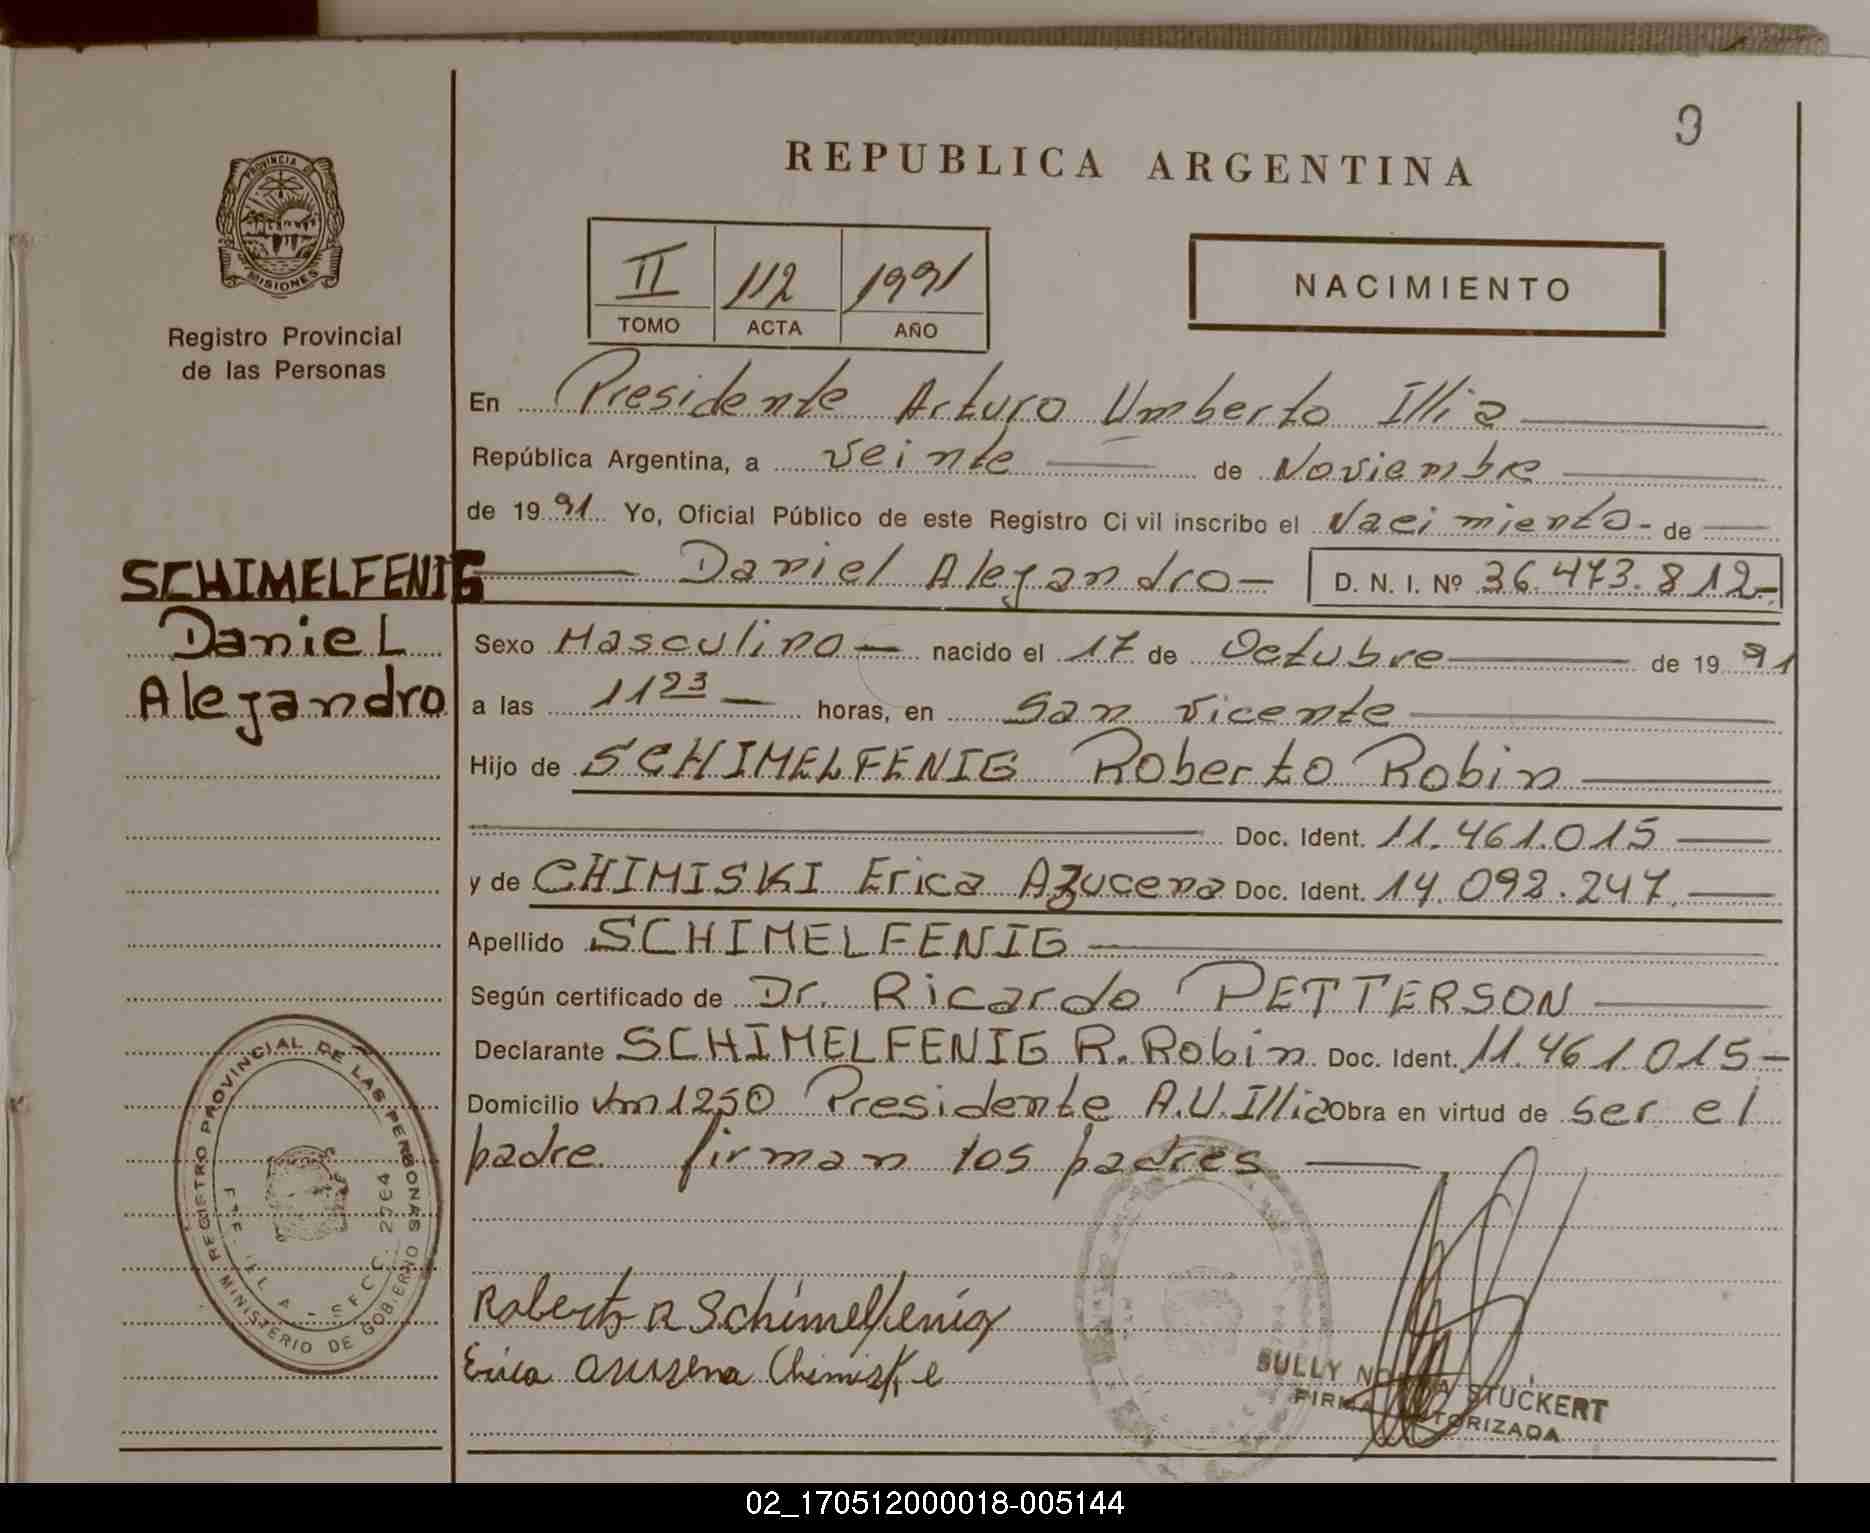 9
REPUBLICA ARGENTINA
PROVINCIA DE MISIONES
Registro Provincial
de las Personas
II 112 1991
TOMO ACTA AÑO
NACIMIENTO
En Presidente Arturo Umberto Illia
República Argentina, a veinte de Noviembre
de 1991 Yo, Oficial Público de este Registro Civil inscribo el Nacimiento - de
SCHIMELFENIG
Daniel
Alejandro
Daniel Alejandro - D. N. I. Nº 36.473.812-
Sexo Masculino - nacido el 17 de Octubre de 1991
a las 1123 - horas, en San Vicente
Hijo de SCHIMELFENIG Roberto Robin
Doc. Ident. 11.461.015
y de CHIMISKI Erica Azucena Doc. Ident. 14.092.247.
Apellido SCHIMELFENIG
Según certificado de Dr. Ricardo PETTERSON
Declarante SCHIMELFENIG R. Robin Doc. Ident. 11.461.015-
Domicilio Km 1250 Presidente A.U.Illia Obra en virtud de ser el
padre firman los padres
REGISTRO PROVINCIAL DE LAS PERSONAS
MINISTERIO DE GOBIERNO
SECC. 2764
Roberto R Schimelfenig
Erica
SULLY STUCKERT
FIRMA AUTORIZADA
02_170512000018-005144